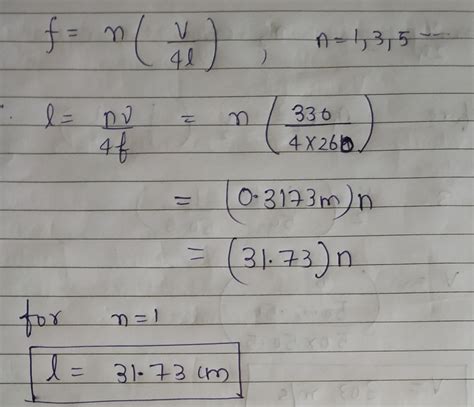 f = n ( v / 4l ) , n = 1, 3, 5 ---
∴ l = nv / 4f = n ( 330 / 4 × 260 )
= (0.3173m) n
= (31.73) n
for n = 1
l = 31.73 cm